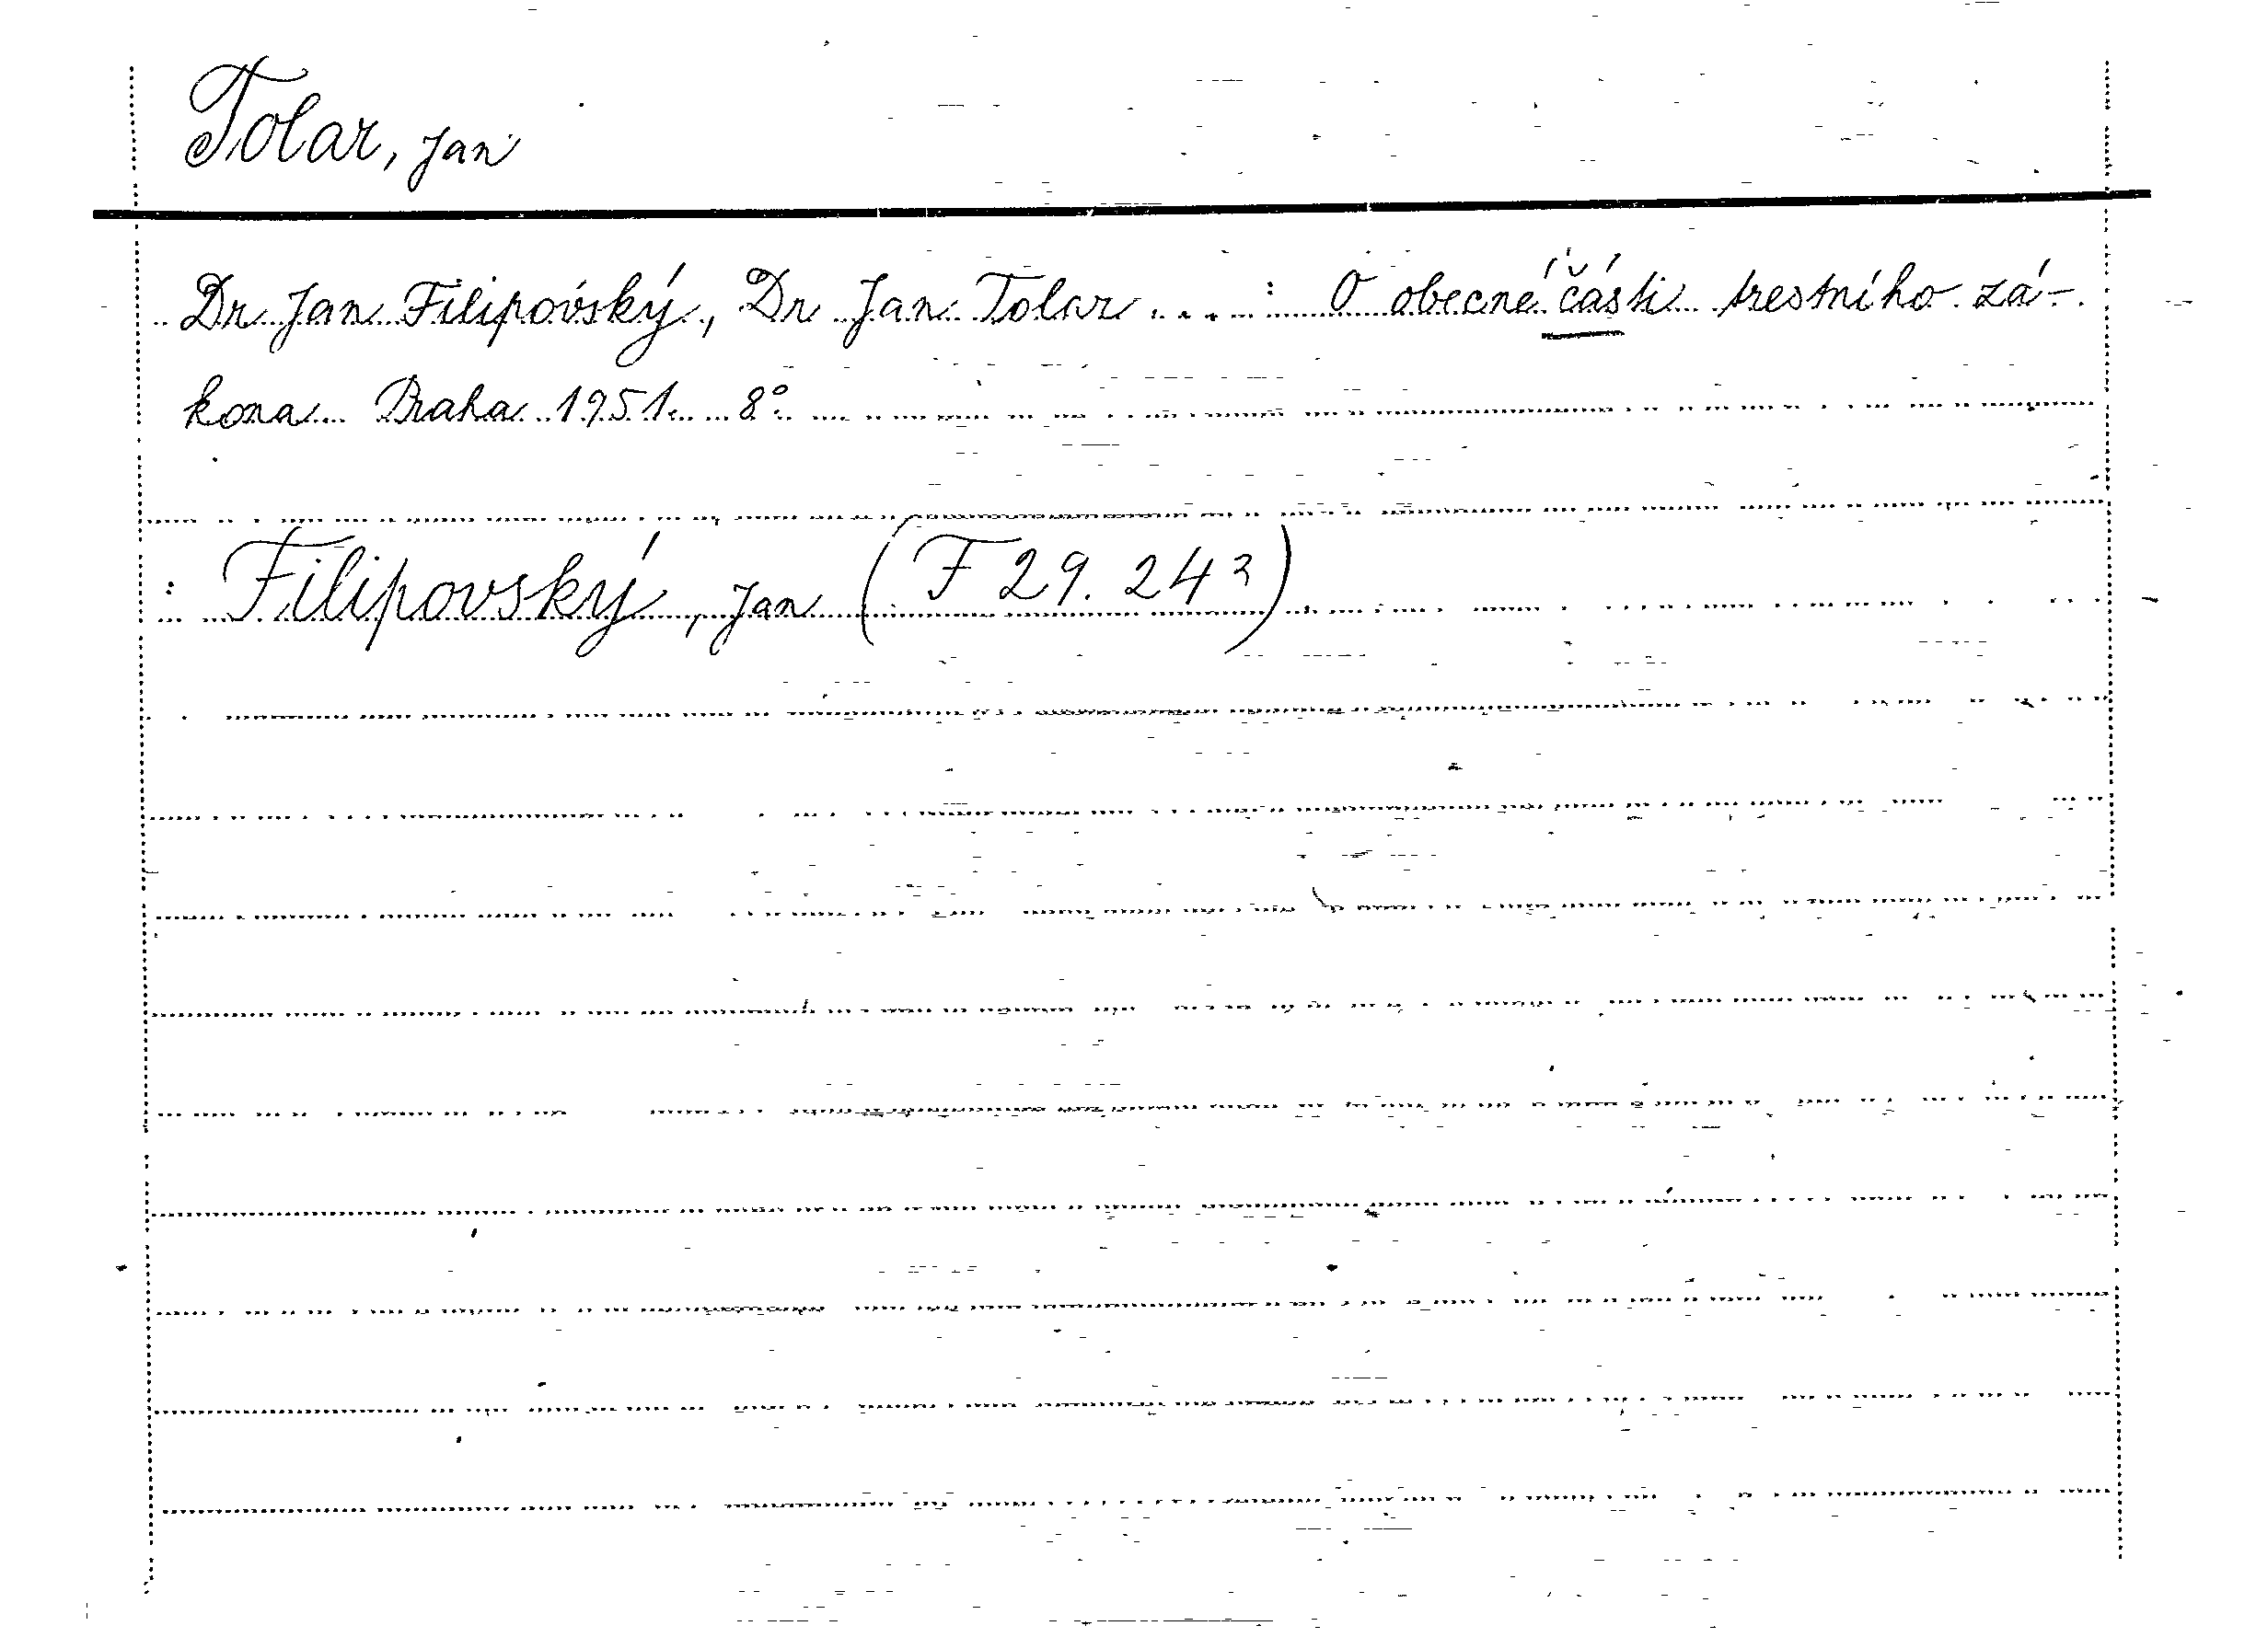 Tolar, Jan
Dr Jan Filipovský, Dr Jan Tolar ...: O obecné části trestního zá-
kona. Praha 1951. 8°.
: Filipovský, Jan (F 29. 24²)